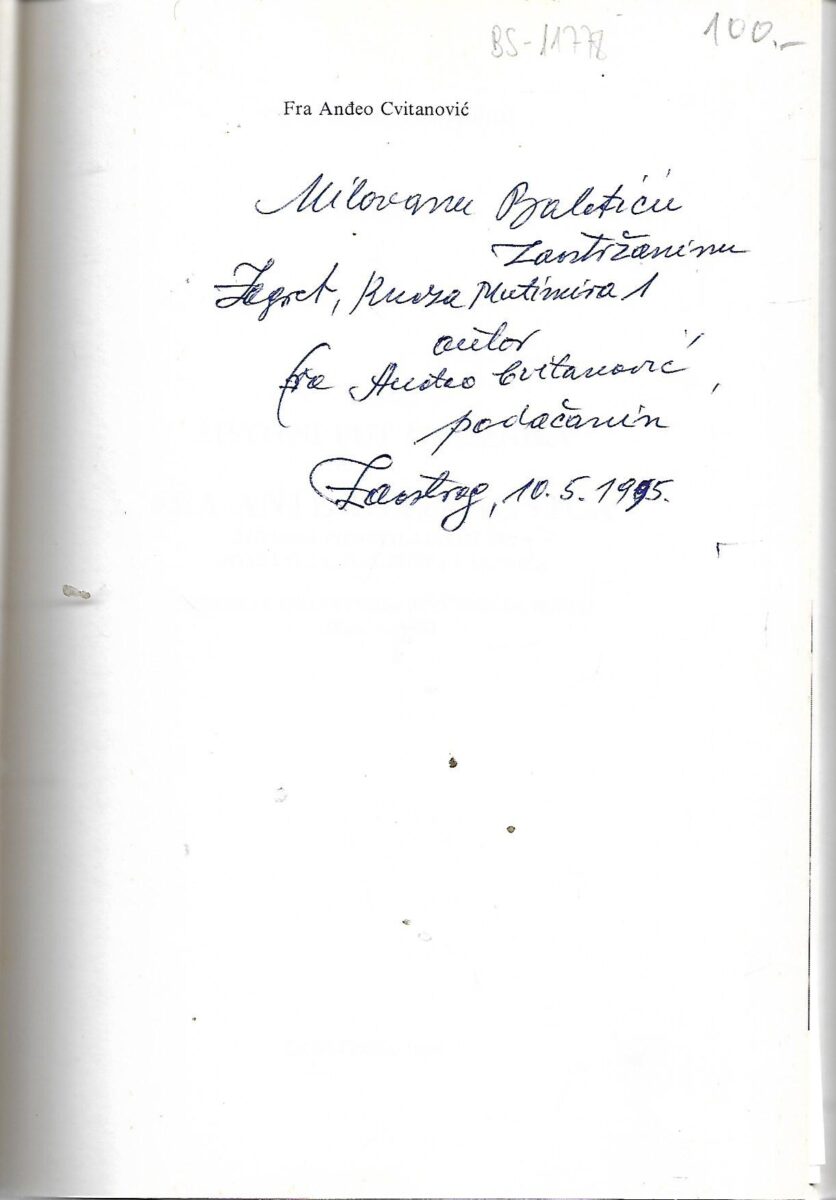 BS-11778
100.-
Fra Anđeo Cvitanović
Milovanu Baletiću
Zaostržaninu
Zagreb, Kneza Mutimira 1
autor
fra Anđeo Cvitanović,
podačanin
Zaostrog, 10. 5. 1995.